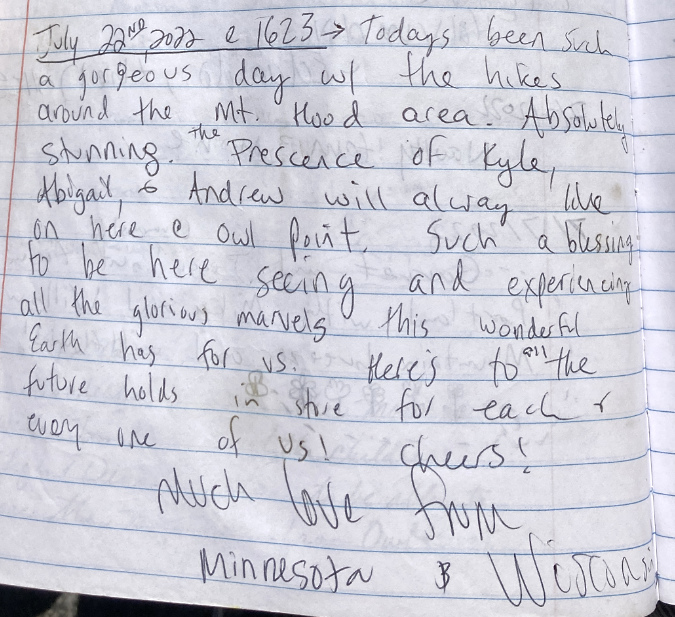 July 22ND, 2022 @ 1623 → Todays been such
a gorgeous day w/ the hikes
around the Mt. Hood area. Absolutely
stunning. the Prescence of Kyle,
Abigail, & Andrew will alway live
on here @ owl point. Such a blessing
to be here seeing and experiencing
all the glorious marvels this wonderful
Earth has for us. Here's to all the
future holds in store for each &
every one of us! Cheers!
Much love from
Minnesota & Wisconsin